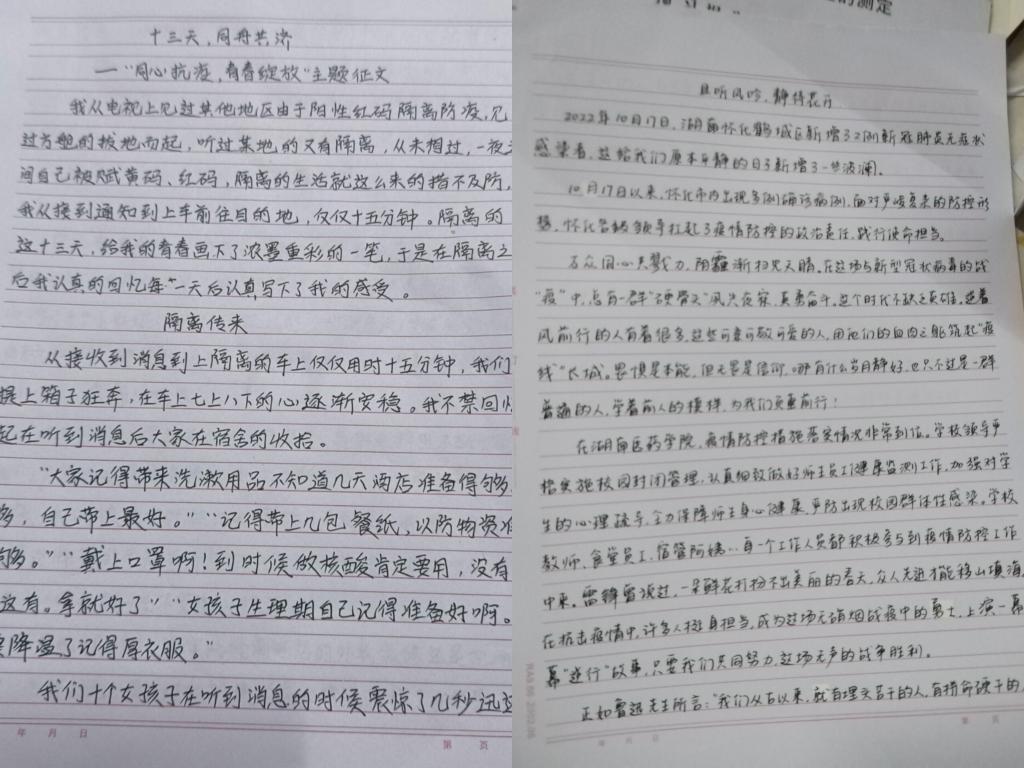 十三天，同舟共济
—“同心抗疫，青春绽放”主题征文
我从电视上见过其他地区由于阳性红码隔离防疫，见
过方舱的拔地而起，听过某地的又有隔离，从未想过，一夜之
间自己被赋黄码、红码，隔离的生活就这么来的措不及防，
我从接到通知到上车前往目的地，仅仅十五分钟。隔离的
这十三天，给我的青春画下了浓墨重彩的一笔，于是在隔离之
后我认真的回忆每一天后认真写下了我的感受。
隔离传来
从接收到消息到上隔离的车上仅仅用时十五分钟，我们
提上箱子狂奔，在车上七上八下的心逐渐安稳。我不禁回忆
起在听到消息后大家在宿舍的收拾。
“大家记得带来洗漱用品不知道几天酒店准备得够
多，自己带上最好。”“记得带上几包餐纸，以防物资准
够。”“戴上口罩啊！到时候做核酸肯定要用，没有
这有。拿就好了”“女孩子生理期自己记得准备好啊。
降温了记得厚衣服。”
我们十个女孩子在听到消息的时候震惊了几秒迅速
年 月 日
第 页
的测定
且听风吟，静待花开
2022年10月17日，湖南怀化鹤城区新增了2例新冠肺炎无症状
感染者，这给我们原本平静的日子新增了一些波澜。
10月17日以来，怀化市内出现多例确诊病例，面对严峻复杂的防控形
势，怀化各级领导扛起了疫情防控的政治责任，践行使命担当。
万众同心共戮力，阴霾渐扫见天晴。在这场与新型冠状病毒的战
“疫”中，总有一群“硬骨头”夙兴夜寐，英勇奋斗。这个时代不缺乏英雄，逆着
风前行的人有着很多，这些可亲可敬可爱的人，用他们的血肉之躯筑起“疫
线”长城。畏惧是本能，但无畏是信仰，哪有什么岁月静好，也只不过是一群
普通的人，学着前人的模样，为我们负重前行！
在湖南医药学院，疫情防控措施落实情况非常到位。学校领导严
格实施校园封闭管理，认真细致做好师生员工健康监测工作，加强对学
生的心理疏导，全力保障师生身心健康，严防出现校园群体性感染。学校
教师、食堂员工、宿管阿姨…每一个工作人员都积极参与到疫情防控工作
中来。雷锋曾说过，一朵鲜花打扮不出美丽的春天，众人先进才能移山填海。
在抗击疫情中，许多人挺身担当，成为这场无硝烟战疫中的勇士，上演一幕
幕“逆行”故事，只要我们共同努力，这场无声的战争胜利。
正如鲁迅先生所言：“我们从古以来，就有埋头苦干的人，有拼命硬干的人
年 月 日
第 页